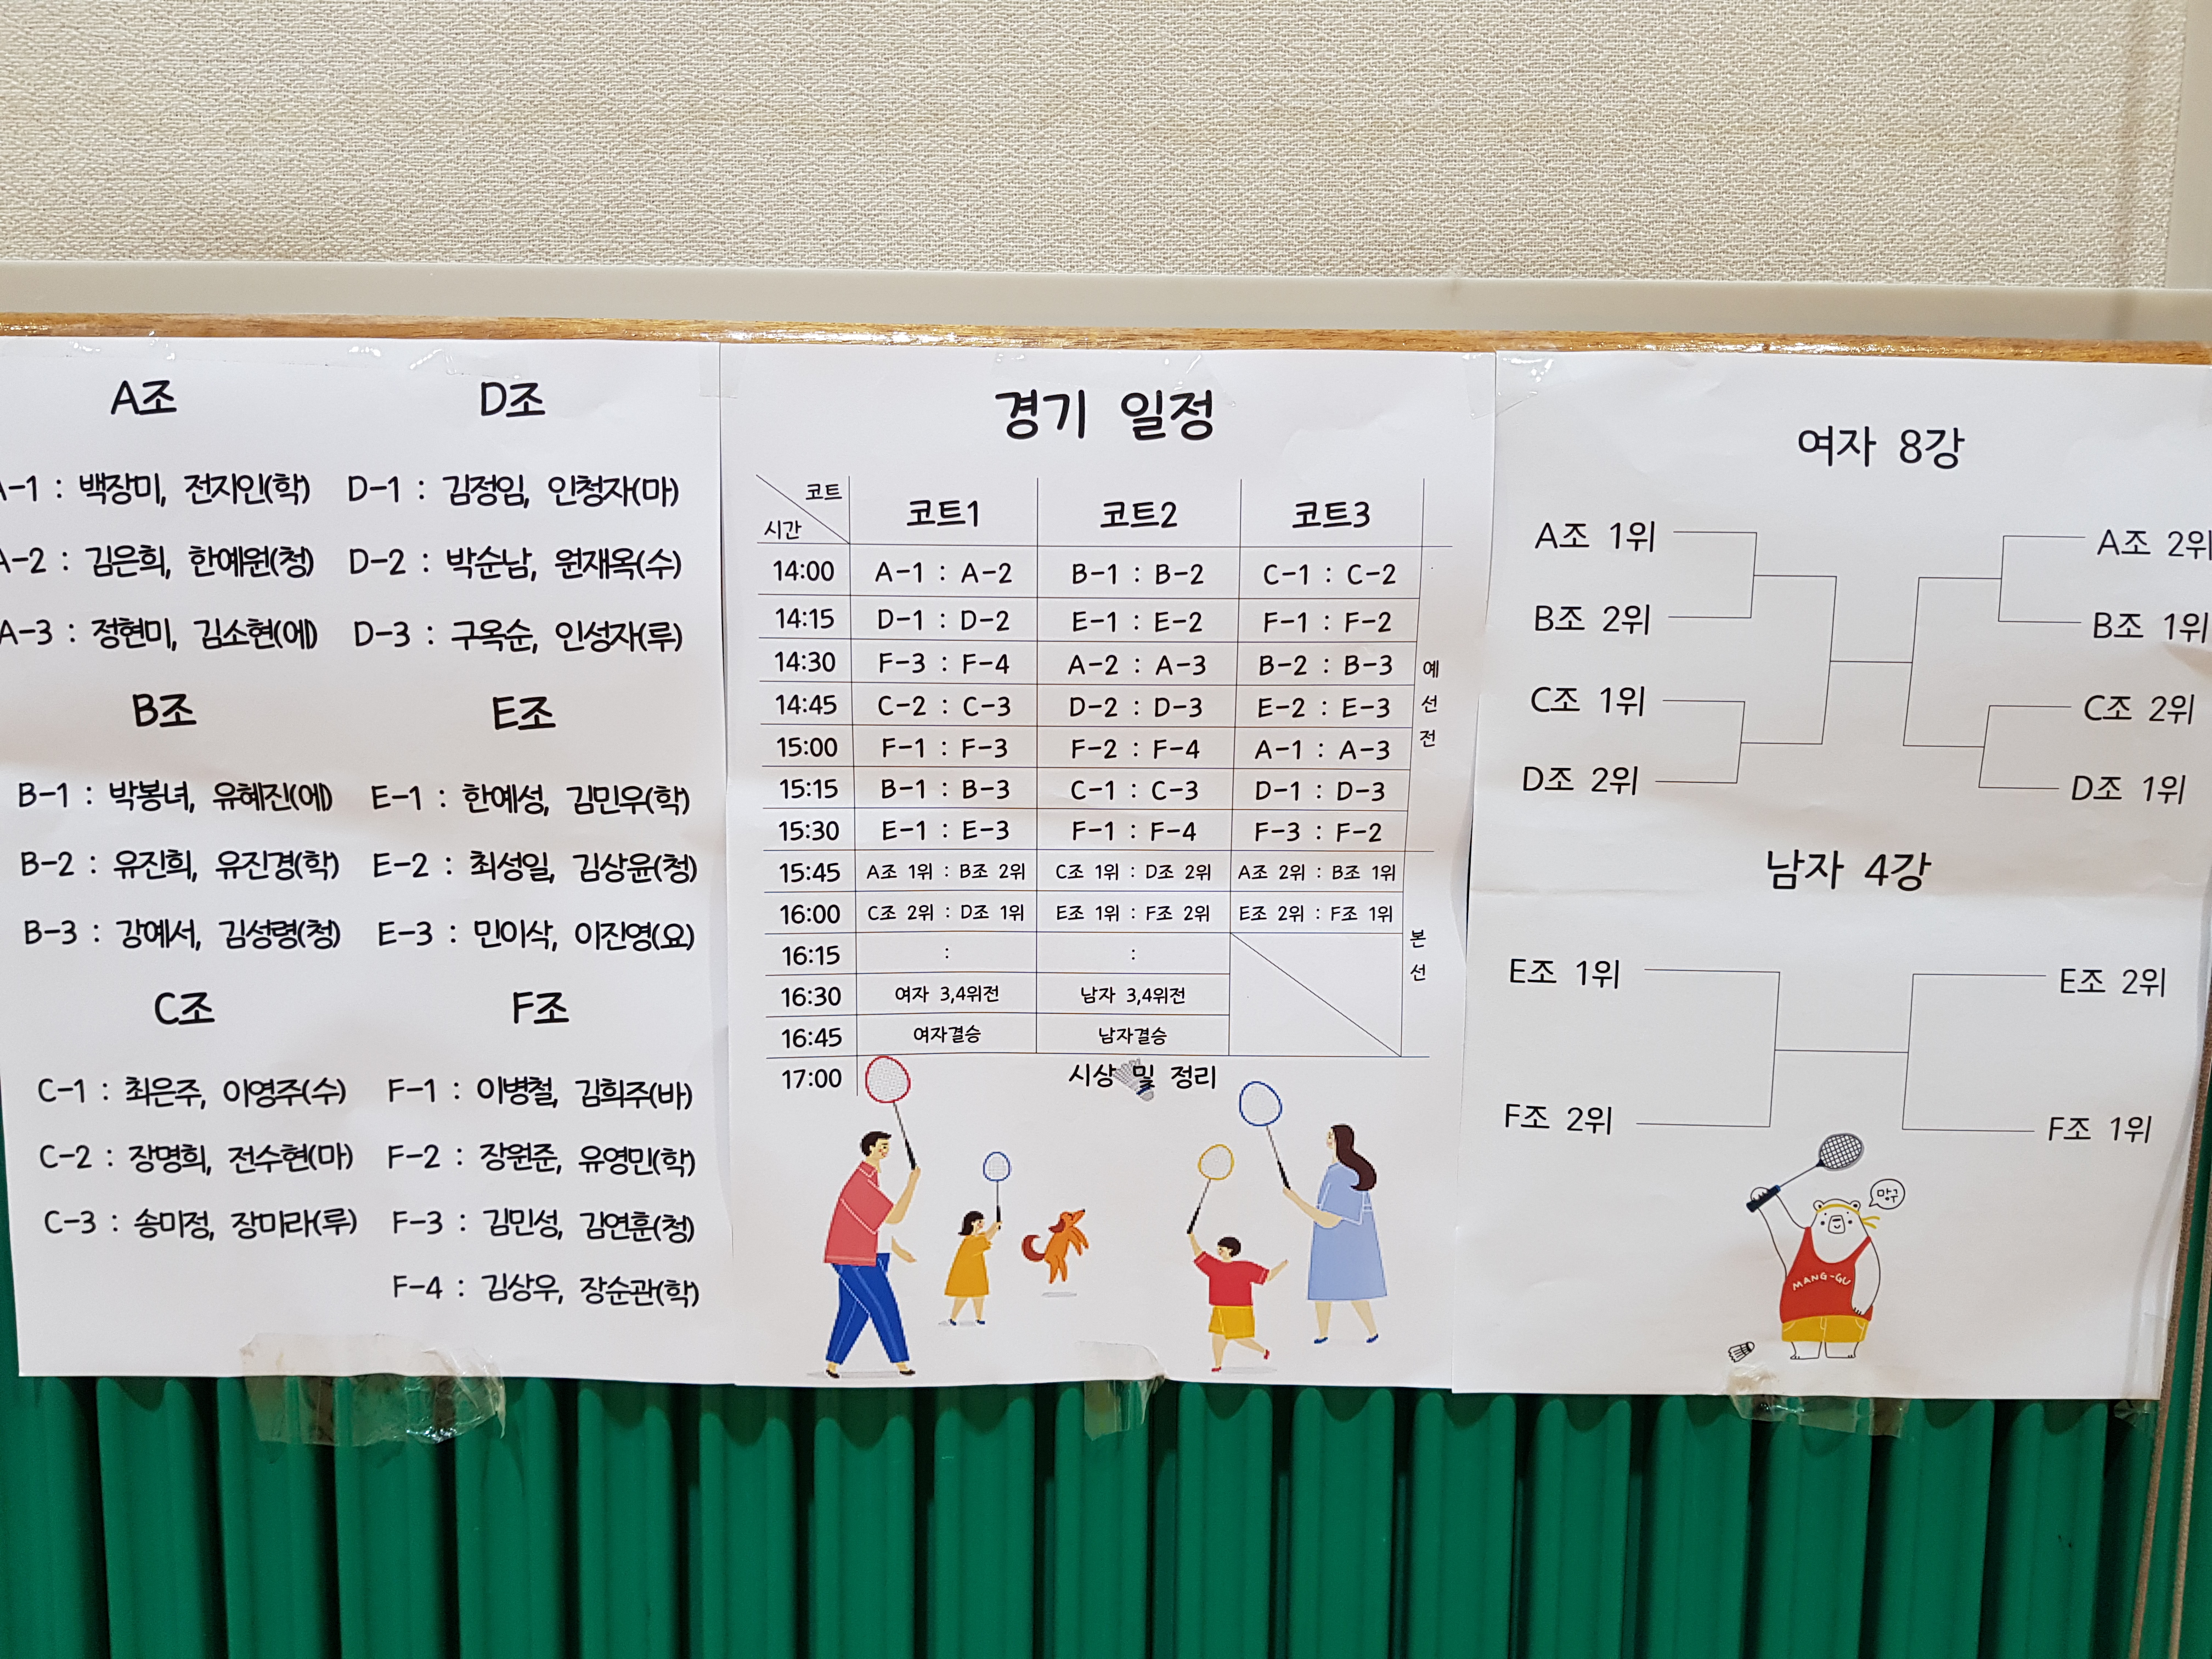 A조
A-1 : 백장미, 전지인(학)
A-2 : 김은희, 한예원(청)
A-3 : 정현미, 김소현(에)
B조
B-1 : 박봉녀, 유혜진(에)
B-2 : 유진희, 유진경(학)
B-3 : 강예서, 김성령(청)
C조
C-1 : 최은주, 이영주(수)
C-2 : 장명희, 전수현(마)
C-3 : 송미정, 장미라(루)
D조
D-1 : 김정임, 인청자(마)
D-2 : 박순남, 원재옥(수)
D-3 : 구옥순, 인성자(루)
E조
E-1 : 한예성, 김민우(학)
E-2 : 최성일, 김상윤(청)
E-3 : 민이삭, 이진영(요)
F조
F-1 : 이병철, 김희주(바)
F-2 : 장원준, 유영민(학)
F-3 : 김민성, 김연훈(청)
F-4 : 김상우, 장순관(학)
경기 일정
코트
시간
코트1 코트2 코트3
14:00 A-1 : A-2 B-1 : B-2 C-1 : C-2
14:15 D-1 : D-2 E-1 : E-2 F-1 : F-2
14:30 F-3 : F-4 A-2 : A-3 B-2 : B-3
14:45 C-2 : C-3 D-2 : D-3 E-2 : E-3
15:00 F-1 : F-3 F-2 : F-4 A-1 : A-3
15:15 B-1 : B-3 C-1 : C-3 D-1 : D-3
15:30 E-1 : E-3 F-1 : F-4 F-3 : F-2
예선전
15:45 A조 1위 : B조 2위 C조 1위 : D조 2위 A조 2위 : B조 1위
16:00 C조 2위 : D조 1위 E조 1위 : F조 2위 E조 2위 : F조 1위
16:15 : :
16:30 여자 3,4위전 남자 3,4위전
16:45 여자결승 남자결승
본선
17:00 시상 및 정리
여자 8강
A조 1위 A조 2위
B조 2위 B조 1위
C조 1위 C조 2위
D조 2위 D조 1위
남자 4강
E조 1위 E조 2위
F조 2위 F조 1위
망구
MANG-GU